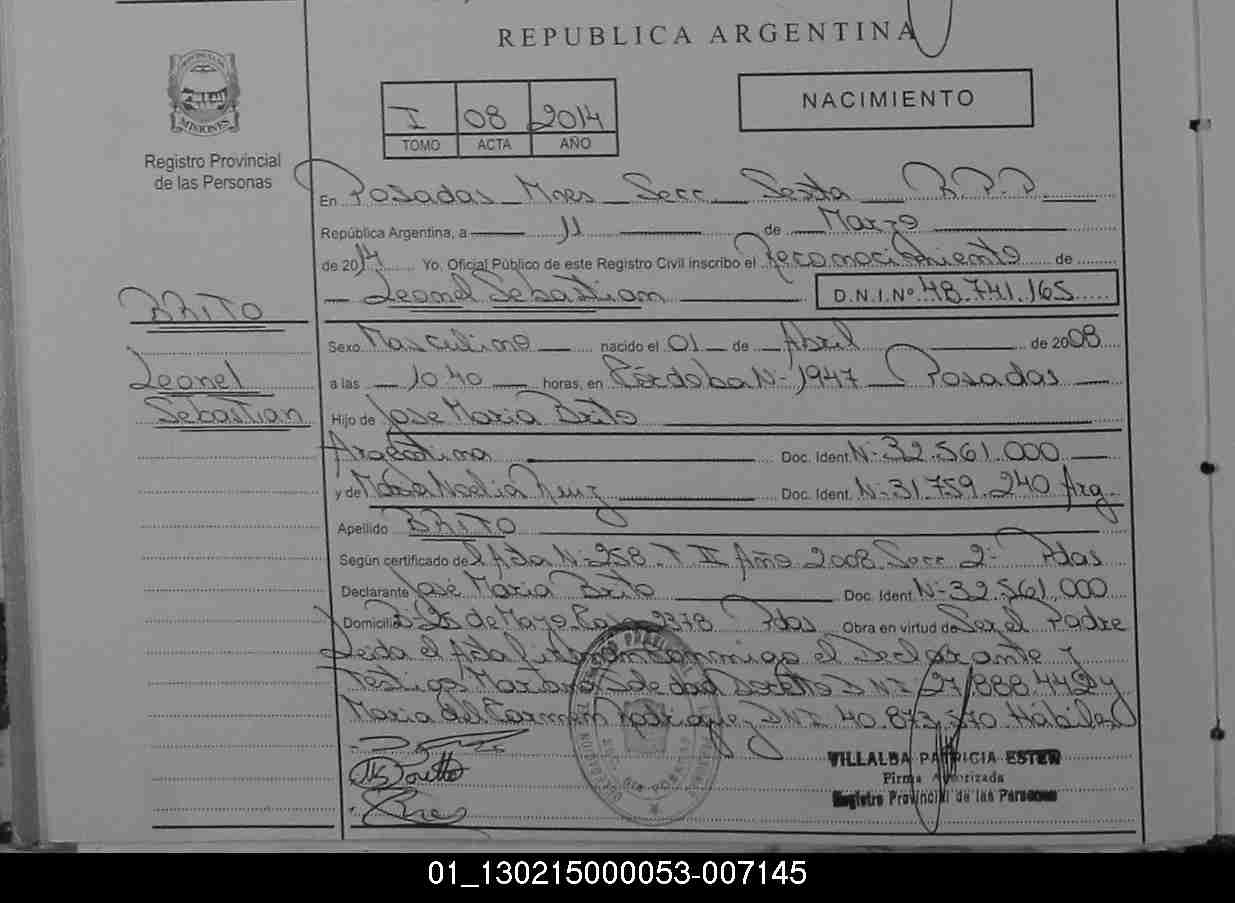 REPUBLICA ARGENTINA
PROVINCIA DE
MISIONES
Registro Provincial
de las Personas
I 08 2014
TOMO ACTA AÑO
NACIMIENTO
En Posadas Mnes Secc Sexta R.P.P
República Argentina, a 11 de Marzo
de 2014 Yo, Oficial Público de este Registro Civil inscribo el Reconocimiento de
Leonel Sebastian D.N.I.Nº 48.741.165
BRITO
Leonel
Sebastian
Sexo Masculino nacido el 01 de Abril de 2008
a las 10 40 horas, en Córdoba Nº 1947 Posadas
Hijo de Jose Maria Brito
Argentina Doc. Ident. Nº 32.561.000
y de Maria Noelia Ruiz Doc. Ident. Nº 31.759.240 Arg.
Apellido BRITO
Según certificado del Acta Nº 258 T II Año 2008 Secc 2º Pdas
Declarante José Maria Brito Doc. Ident. Nº 32.561.000
Domicilio 25 de Mayo Casa 2378 Pdas Obra en virtud de Ser el Padre
Leida el Acta firman conmigo el Declarante y
Testigos Mariana Soledad Doretto DNI 27.888.442 y
Maria del Carmen Rodriguez DNI 40.873.570 Hábiles
MSDoretto
VILLALBA PATRICIA ESTER
Firma Autorizada
Registro Provincial de las Personas
01_130215000053-007145